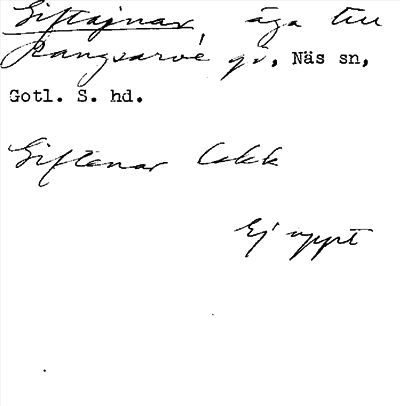 Giftajnar, äga till
Rangsarve gd, Näs sn,
Gotl. S. hd.
Giftenar Lekk
Ej uppt